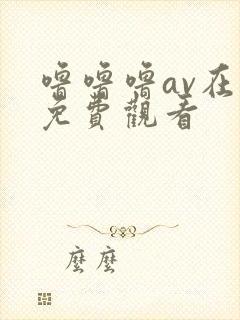 噜噜噜av在
免費觀看
麼麼